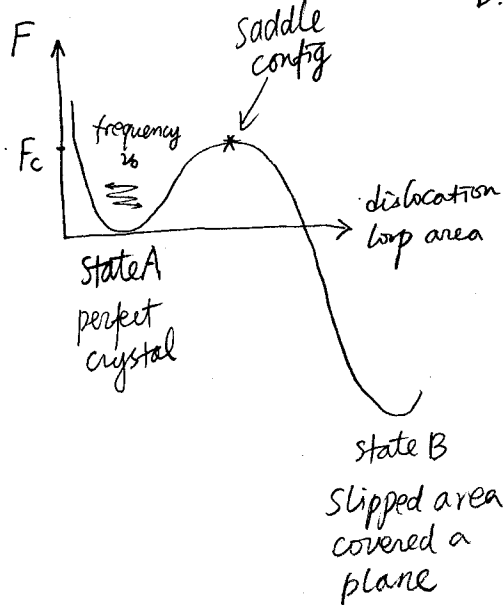 F
saddle
config
frequency
ν₀
Fc
dislocation
loop area
State A
perfect
crystal
state B
Slipped area
covered a
plane